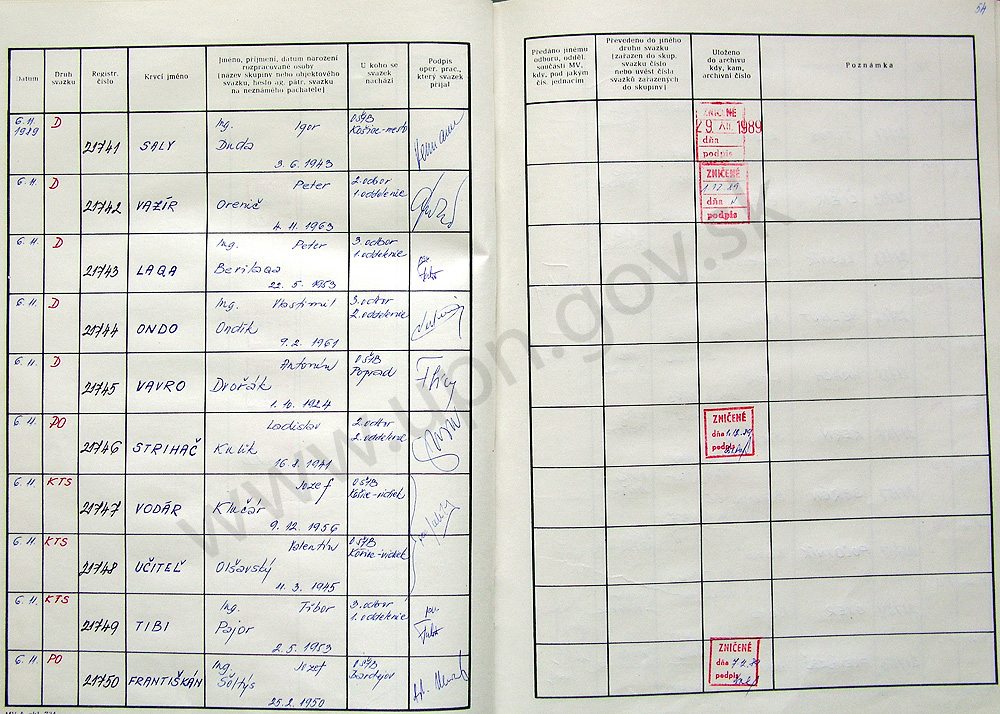 54
Datum
Druh svazku
Registr. číslo
Krycí jméno
Jméno, příjmení, datum narození
rozpracované osoby
(název skupiny nebo objektového
svazku, heslo ag. pátr. svazku
na neznámého pachatele)
U koho se
svazek
nachází
Podpis
oper. prac.,
který svazek
přijal
Předáno jinému
odboru, odděl.
součásti MV,
kdy, pod jakým
čís. jednacím
Převedeno do jiného
druhu svazku
(zařazen do skup.
svazku číslo
nebo uvést čísla
svazků zařazených
do skupiny)
Uloženo
do archivu
kdy, kam,
archivní číslo
Poznámka
6. 11. 1989 D 21741 SALY Ing. Igor Duda 3. 6. 1943 OŠtB Košice-mesto
ZNIČENÉ
29. XII. 1989
dňa
podpis
6. 11. D 21742 VAZÍR Peter Orenič 4. 11. 1963 2. odbor 1. oddelenie
ZNIČENÉ
1.12.89
dňa
podpis
6. 11. D 21743 LAQA Ing. Peter Berilaqa 22. 5. 1953 3. odbor 1. oddelenie
6. 11. D 21744 ONDO Ing. Vlastimil Ondík 9. 2. 1961 3. odbor 2. oddelenie
6. 11. D 21745 VAVRO Antonín Dvořák 1. 10. 1924 OŠtB Poprad
6. 11. PO 21746 STRIHAČ Ladislav Kulik 16. 8. 1941 2. odbor 2. oddelenie
ZNIČENÉ
dňa 1.12.89
podpis
6. 11. KTS 21747 VODÁR Jozef Klučár 9. 12. 1956 OŠtB Košice-vidiek
6. 11. KTS 21748 UČITEĽ Valentín Olšavský 11. 3. 1945 OŠtB Košice-vidiek
6. 11. KTS 21749 TIBI Ing. Tibor Pajor 2. 5. 1953 3. odbor 1. oddelenie
6. 11. PO 21750 FRANTIŠKÁN Ing. Jozef Šoltýs 25. 2. 1950 OŠtB Bardejov
ZNIČENÉ
dňa
podpis
www.upn.gov.sk